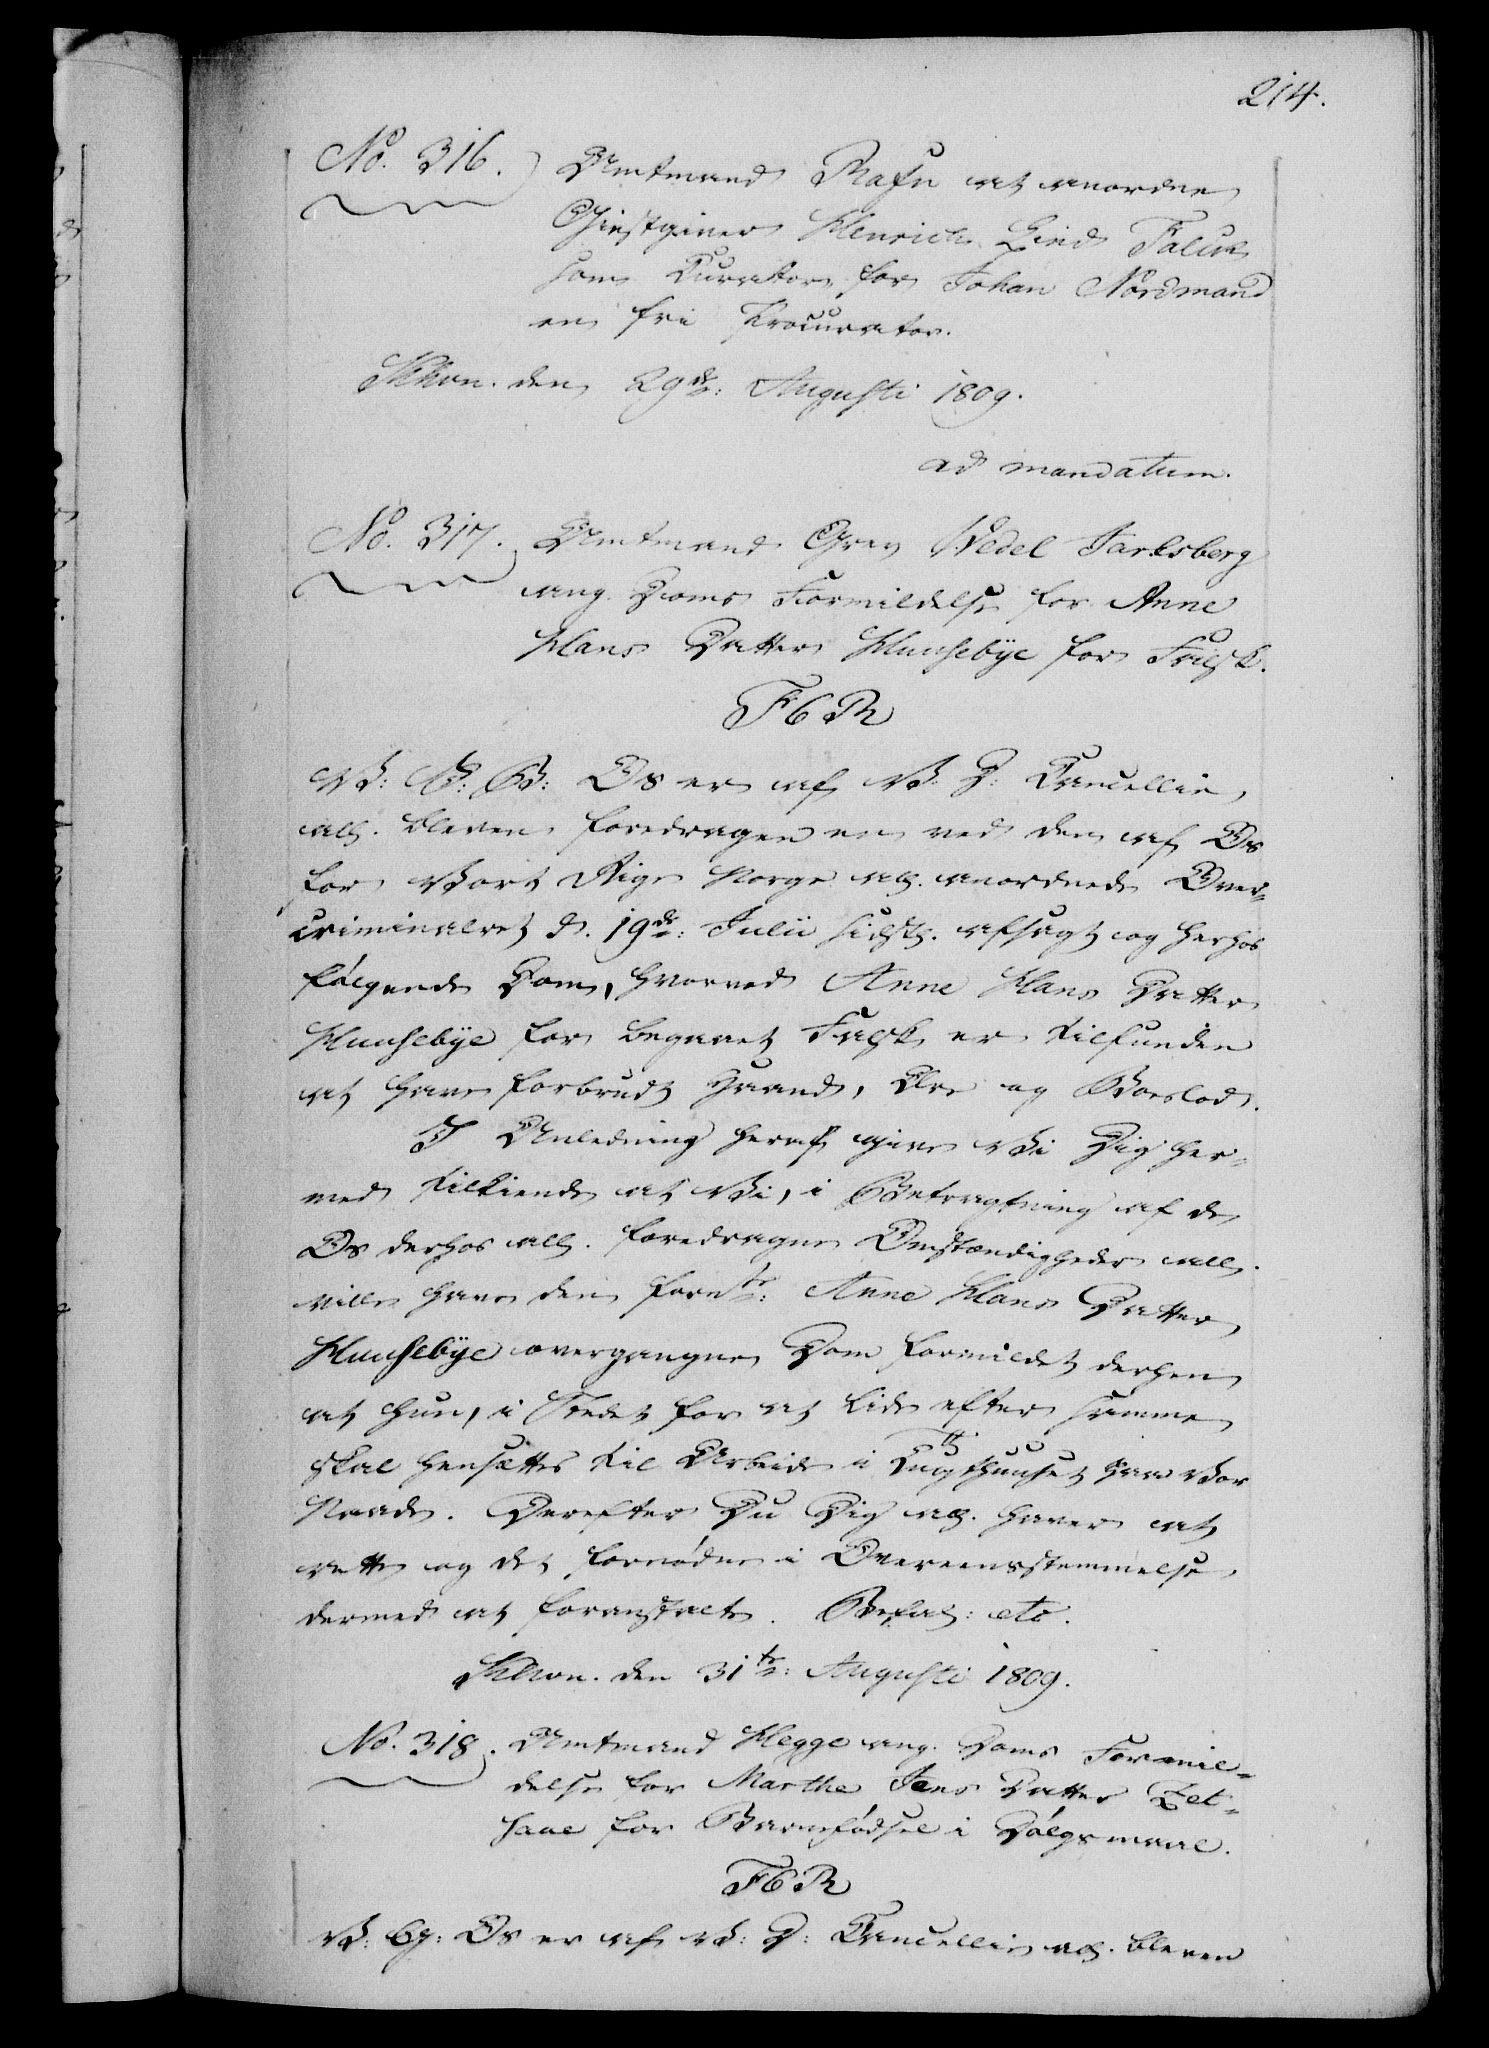 214.
No. 316. Amtmand Rafn at anordne
Giestgiver Henrich Lind Falck
som Curator for Johan Nordmand
en fri Procurator.
Khvn. den 29de: Augusti 1809.
ad mandatum.
No. 317. Amtmand Grev Wedel Jarlsberg
ang. Doms Formildelse for Anne
Hans Datter Huusebÿe for Falsk.
F6R
V: S: G: Os er af V: D: Cancellie
all. bleven foredragen en ved den af Os
for Vort Rige Norge all. anordnede Over-
criminalret d. 19de: Julii sidstl. afsagt og herhos
følgende Dom, hvorved Anne Hans Datter
Huusebÿe for begaaet Falsk er tilfunden
at have forbrudt Haand, Ære og Boeslod.
I Anledning heraf give Vi Dig her-
med tilkiende at Vi, i Betragtning af de
Os derhos all. foredragne Omstændigheder all.
ville have den fornte: Anne Hans Datter
Huusebÿe overgangne Dom formildet derhen
at hun, i Stedet for at lide efter samme
skal hensættes til Arbeide i Tugthuuset paa Vor
Naade. Derefter Du Dig all. haver at
rette og det fornødne i Overeensstemmelse
dermed at foranstalte. Befal: etc.
Khvn. den 31te: Augusti 1809.
No. 318. Amtmand Hegge ang. Doms Formil-
delse for Marthe Jens Datter Zet-
haae for Barnefødsel i Dølgsmaal.
F6R
V: G: Os er af V: D: Cancellie all. bleven